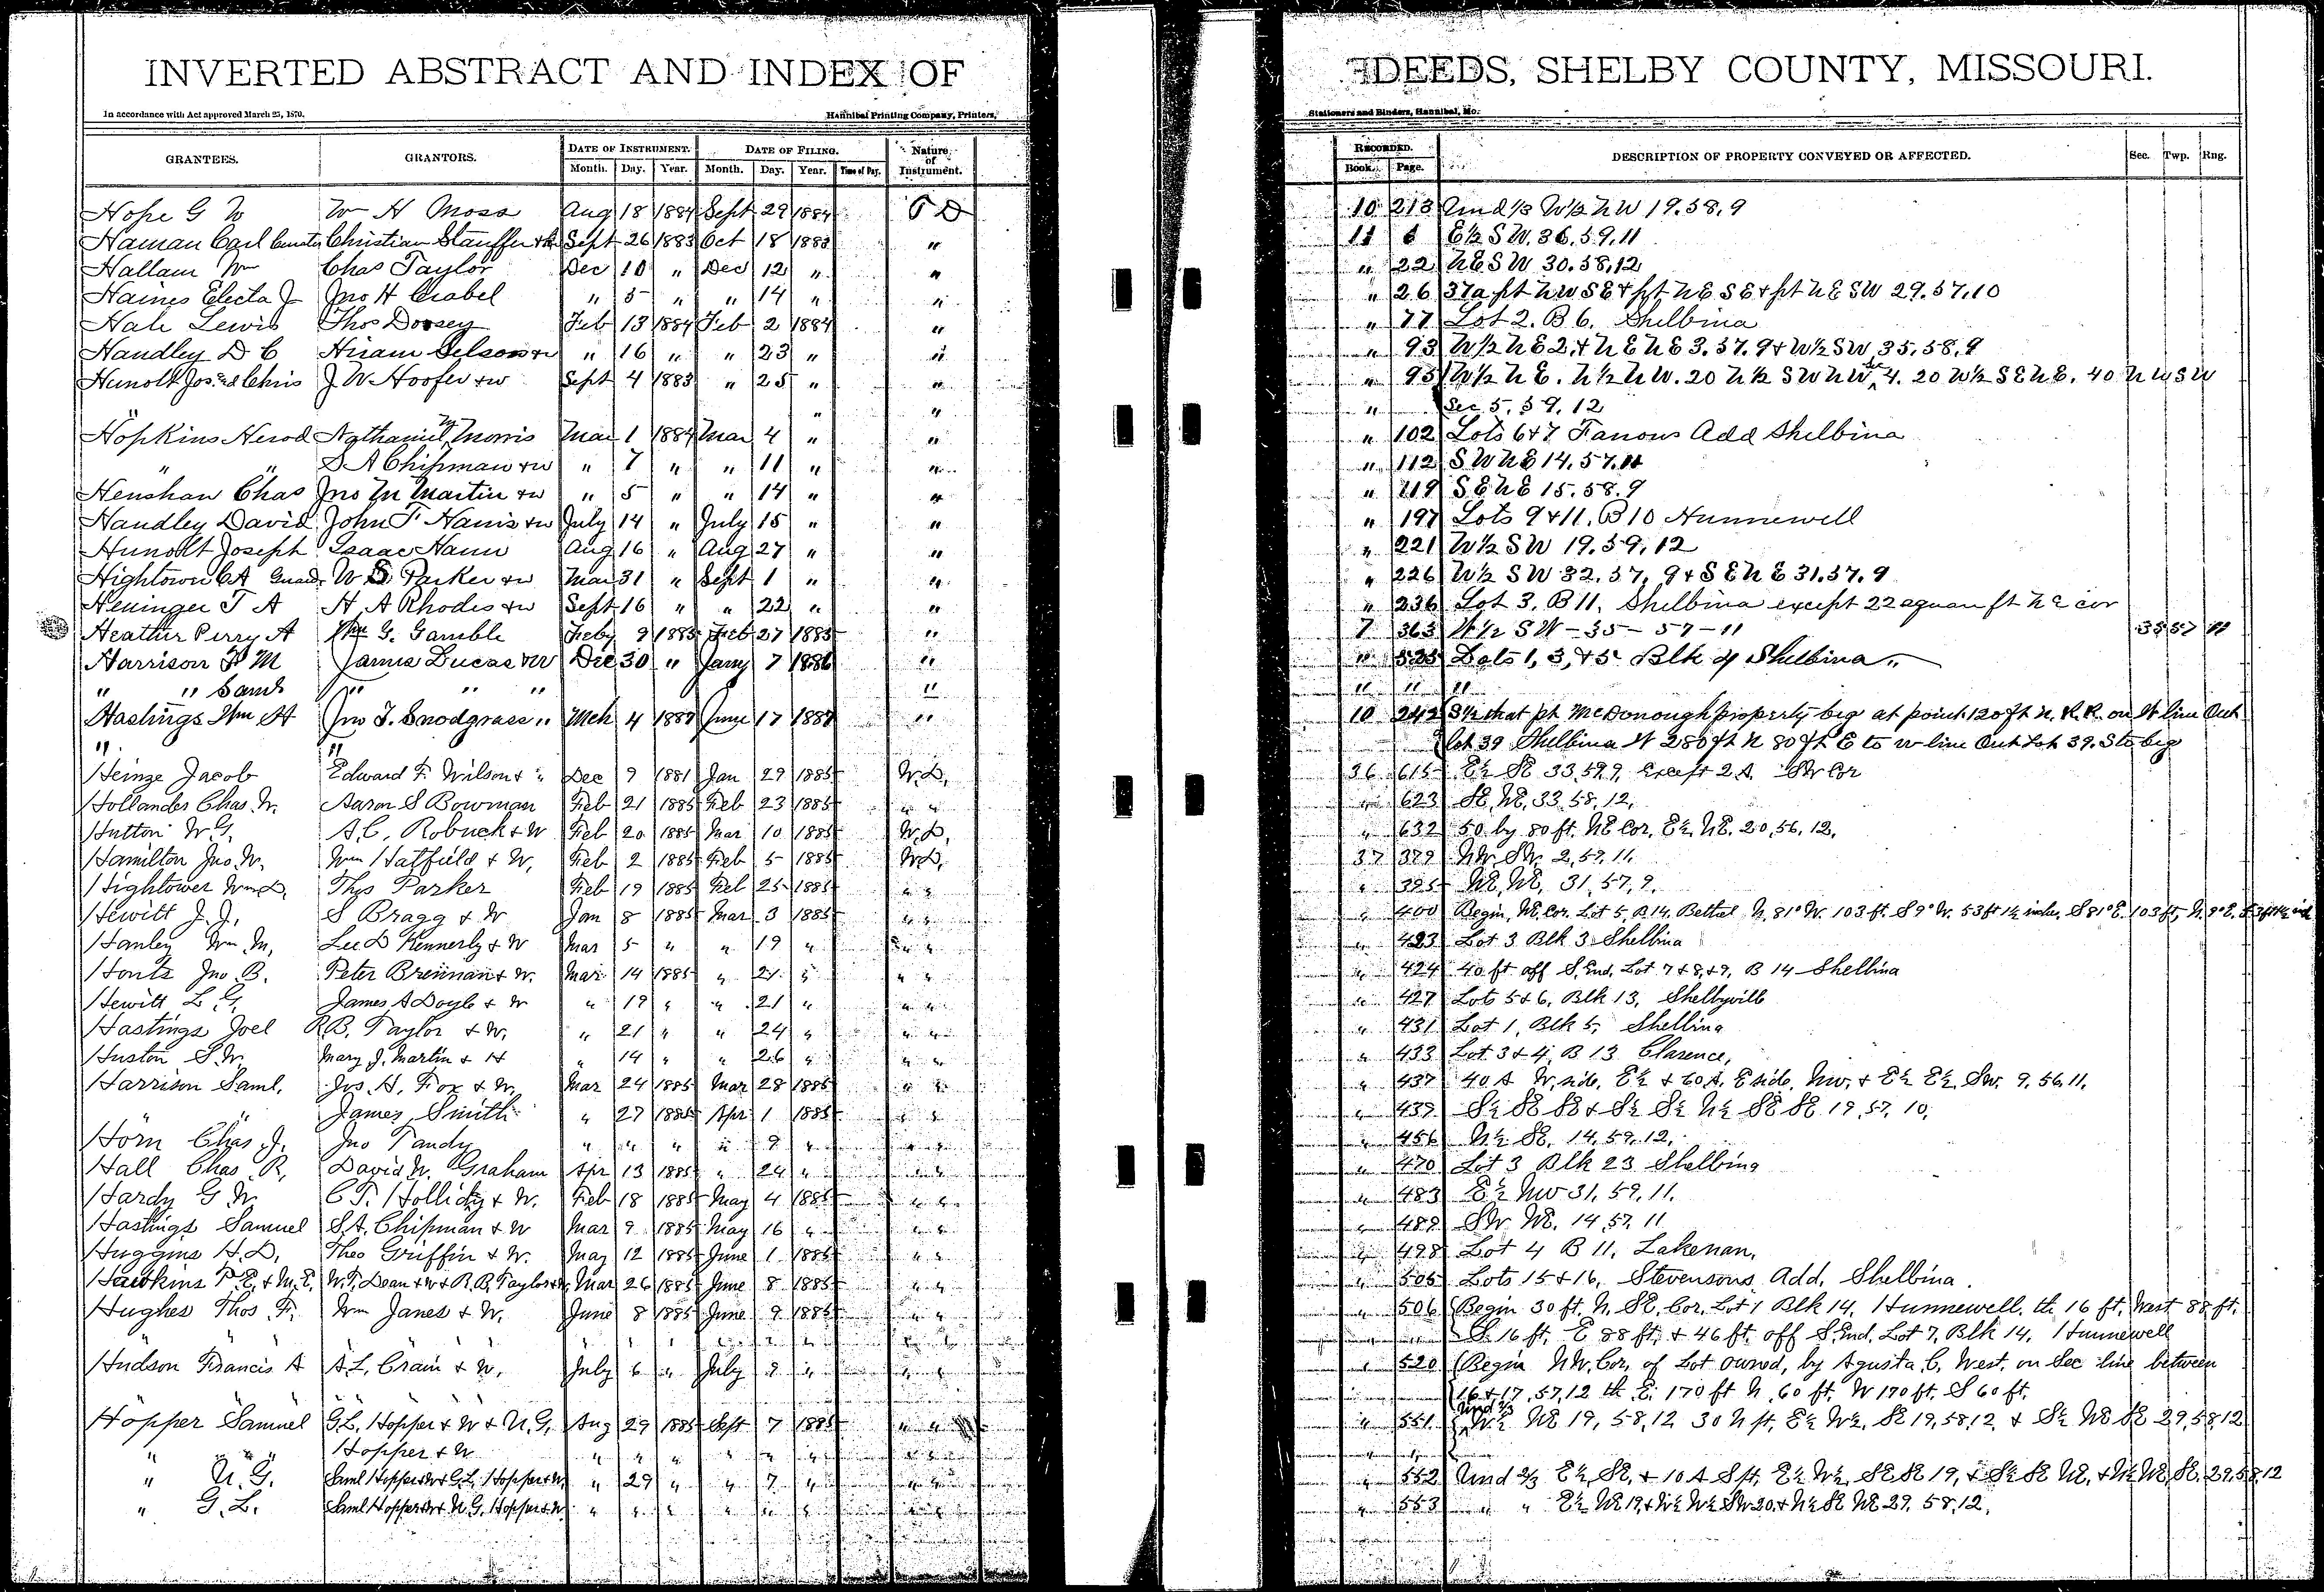 INVERTED ABSTRACT AND INDEX OF DEEDS, SHELBY COUNTY, MISSOURI.
In accordance with Act approved March 25, 1870. Hannibal Printing Company, Printers, Stationers and Binders, Hannibal, Mo.
GRANTEES. GRANTORS. DATE OF INSTRUMENT. DATE OF FILING. Nature of Instrument. RECORDED. DESCRIPTION OF PROPERTY CONVEYED OR AFFECTED. Sec. Twp. Rng.
Month. Day. Year. Month. Day. Year. Time of Day. Book. Page.
Hope G W Wm H Moss Aug 18 1884 Sept 29 1884 10 213 Und 1/3 W½ NW 19.58.9
Haman Carl Christian Stauffer Sept 26 1883 Oct 18 1883 " 11 6 E½ SW. 36.59.11
Hallam Wm Chas Taylor Dec 10 " Dec 12 " " " 22 NE SW 30.58.12
Haines Electa J Jno H " 5 " " 14 " " " 26 37a pt NW SE + pt NE SE + pt NE SW 29.57.10
Hale Lewis Thos Dorsey Feb 13 1884 Feb 2 1884 " " 77 Lot 2. B 6. Shelbina
Handley D C Hiram " 16 " " 23 " " " 93 W½ NE 2. + NE NE 3.57.9 + W½ SW 35.58.9
Hunolt Jos. and Chris J. W. Hoofer + w Sept 4 1883 " 25 " " " 95 W½ NE. N½ NW. 20 N½ SW NW 4. 20 W½ SE NE. 40 NW SW
" " " " Sec 5.59.12
Hopkins Nerod Nathaniel M Morris Mar 1 1884 Mar 4 " " " 102 Lots 6+7 Fanous Add Shelbina
" " S A Chipman + w " 7 " " 11 " " " 112 SW NE 14.57.11
Henshaw Chas Jno M Martin + w " 5 " " 14 " " " 119 SE NE 15.58.9
Handley David John F Harris + w July 14 " July 15 " " " 197 Lots 9+11. B 10 Hunnewell
Hunolt Joseph Isaac Hann Aug 16 " Aug 27 " " " 221 W½ SW 19.59.12
Hightown C A Guard. W S Parker + w Mar 31 " Sept 1 " " " 226 W½ SW 32.57.9 + SE NE 31.57.9
T A H A Rhodes + w Sept 16 " " 22 " " " 236 Lot 3. B 11. Shelbina except 22 aquan ft NE cor
Heather Perry A G. Gamble Feby 9 1885 Feb 27 1885 " 7 363 W½ SW - 35 - 57 - 11 35 57 11
Harrison F M James Lucas + W Dec 30 " Jany 7 1886 " " 525 Lots 1, 3, + 5 Blk 4 Shelbina "
" " Sarah " " " " " " "
Hastings Wm H Jno T. Snodgrass " Mch 4 1887 June 17 1887 " 10 242 S½ that pt McDonough property beg at point 120 ft N. R.R. on W line Out
" " lot 39 Shelbina W 280 ft N 80 ft E to W line Out Lot 39. S to beg
Heinze Jacob Edward F. Wilson + " Dec 9 1881 Jan 29 1885 W.D. 36 615 E½ SE 33.59.9 Except 2 A. SW Cor
Hollander Chas. W. Aaron S Bowman Feb 21 1885 Feb 23 1885 " " " 623 SE, NE, 33, 58, 12,
Hutton W. G. A. C. Robuck + W Feb 20 1885 Mar 10 1885 W.D. " 632 50 by 80 ft. NE Cor. E½ NE. 20, 56, 12.
Hamilton Jno. W. Wm Hatfield + W, Feb 2 1885 Feb 5 1885 W.D. 37 379 NW. SW. 2, 57, 11.
Hightower Wm D. Thos Parker Feb 19 1885 Feb 25 1885 " " " 395 NE, NE, 31, 57, 9.
Hewitt J. J. S Bragg + W Jan 8 1885 Mar 3 1885 " " " 400 Begin, NE, Cor. Lot 5, B 14, Bethel N. 81° W. 103 ft. S 9° W. 53 ft 1½ inches S 81° E. 103 ft, N. 9° E.
Hanley Wm. M. Lee D Kennerly + W Mar 5 " " 19 " " " " 423 Lot 3 Blk 3 Shelbina
Hontz Jno. B. Peter Brennan + W. Mar 14 1885 " 21 " " " " 424 40 ft off S. End, Lot 7 + 8, + 9, B 14 Shelbina
Hewitt L. G. James A Doyle + W " 19 " " 21 " " " " 427 Lots 5 + 6, Blk 13, Shelbyville
Hastings Joel R.B. Taylor + W, " 21 " " 24 " " " " 431 Lot 1, Blk 5, Shelbina
Huston S. W. Mary J. Martin + H " 14 " " 26 " " " " 433 Lot 3 + 4, B 13 Clarence,
Harrison Saml. Jos. H. Fox + W, Mar 24 1885 Mar 28 1885 " " " 437 40 A W. side, E½ + 60 A. E side, NW. + E½ E½ SW. 9, 56, 11.
" " James Smith " 27 1885 Apr 1 1885 " " " 439 S½ SE SE + S½ S½ N½ SE SE 19, 57, 10.
Horn Chas. J. Jno Tandy " " " " 9 " " " " 456 N½ SE, 14, 59, 12,
Hall Chas. R. David W. Graham Apr 13 1885 " 24 " " " " 470 Lot 3 Blk 23 Shelbina
Hardy G. W. C T. Holliday + W. Feb 18 1885 May 4 1885 " " " 483 E½ NW 31, 59, 11.
Hastings Samuel S.A. Chipman + W Mar 9 1885 May 16 " " " " 489 SW. NE. 14, 57, 11
Huggins H. D. Theo Griffin + W. May 12 1885 June 1 1885 " " " 498 Lot 4 B 11, Lakenan,
Hawkins P. E. + M. E. W. T. Dean + W + R. B. Taylor + W, Mar 26 1885 June 8 1885 " " " 505 Lots 15 + 16, Stevensons Add. Shelbina.
Hughes Thos. F. Wm Janes + W, June 8 1885 June 9 1885 " " " 506 Begin 30 ft. N. SE, Cor. Lot 1 Blk 14, Hunnewell. th 16 ft. West 88 ft.
" " " " " " " " " " " " S. 16 ft. E 88 ft. + 46 ft. off S. End, Lot 7, Blk 14, Hunnewell
Hudson Francis A A. L. Crain + W, July 6 " July 9 " " " " 520 Begin NW. Cor, of Lot owned, by Agusta C. West, on Sec line between
16 + 17, 57, 12 th E. 170 ft N. 60 ft. W 170 ft. S 60 ft.
Hopper Samuel G.L. Hopper + W + U.G. Aug 29 1885 Sept 7 1885 " " " 551 Und 2/3 W½ NE 19, 58, 12 30 N pt, E½ W½, SE 19, 58, 12 + S½ NE SE 29, 58, 12
" " Hopper + W " " " " " " " " " "
" U. G. Saml Hopper + W + G. L. Hopper + W, " 29 " " 7 " " " " 552 Und 2/3 E½, SE, + 10 A S pt, E½ W½, SE SE 19, + S½ SE NE, + N½ NE, SE, 29, 58, 12
" G. L. Saml Hopper + W + U. G. Hopper + W. " " " " " " " " " 553 " " E½ NE 19, + W½ W½ SW 20, + N½ SE NE 29, 58, 12.